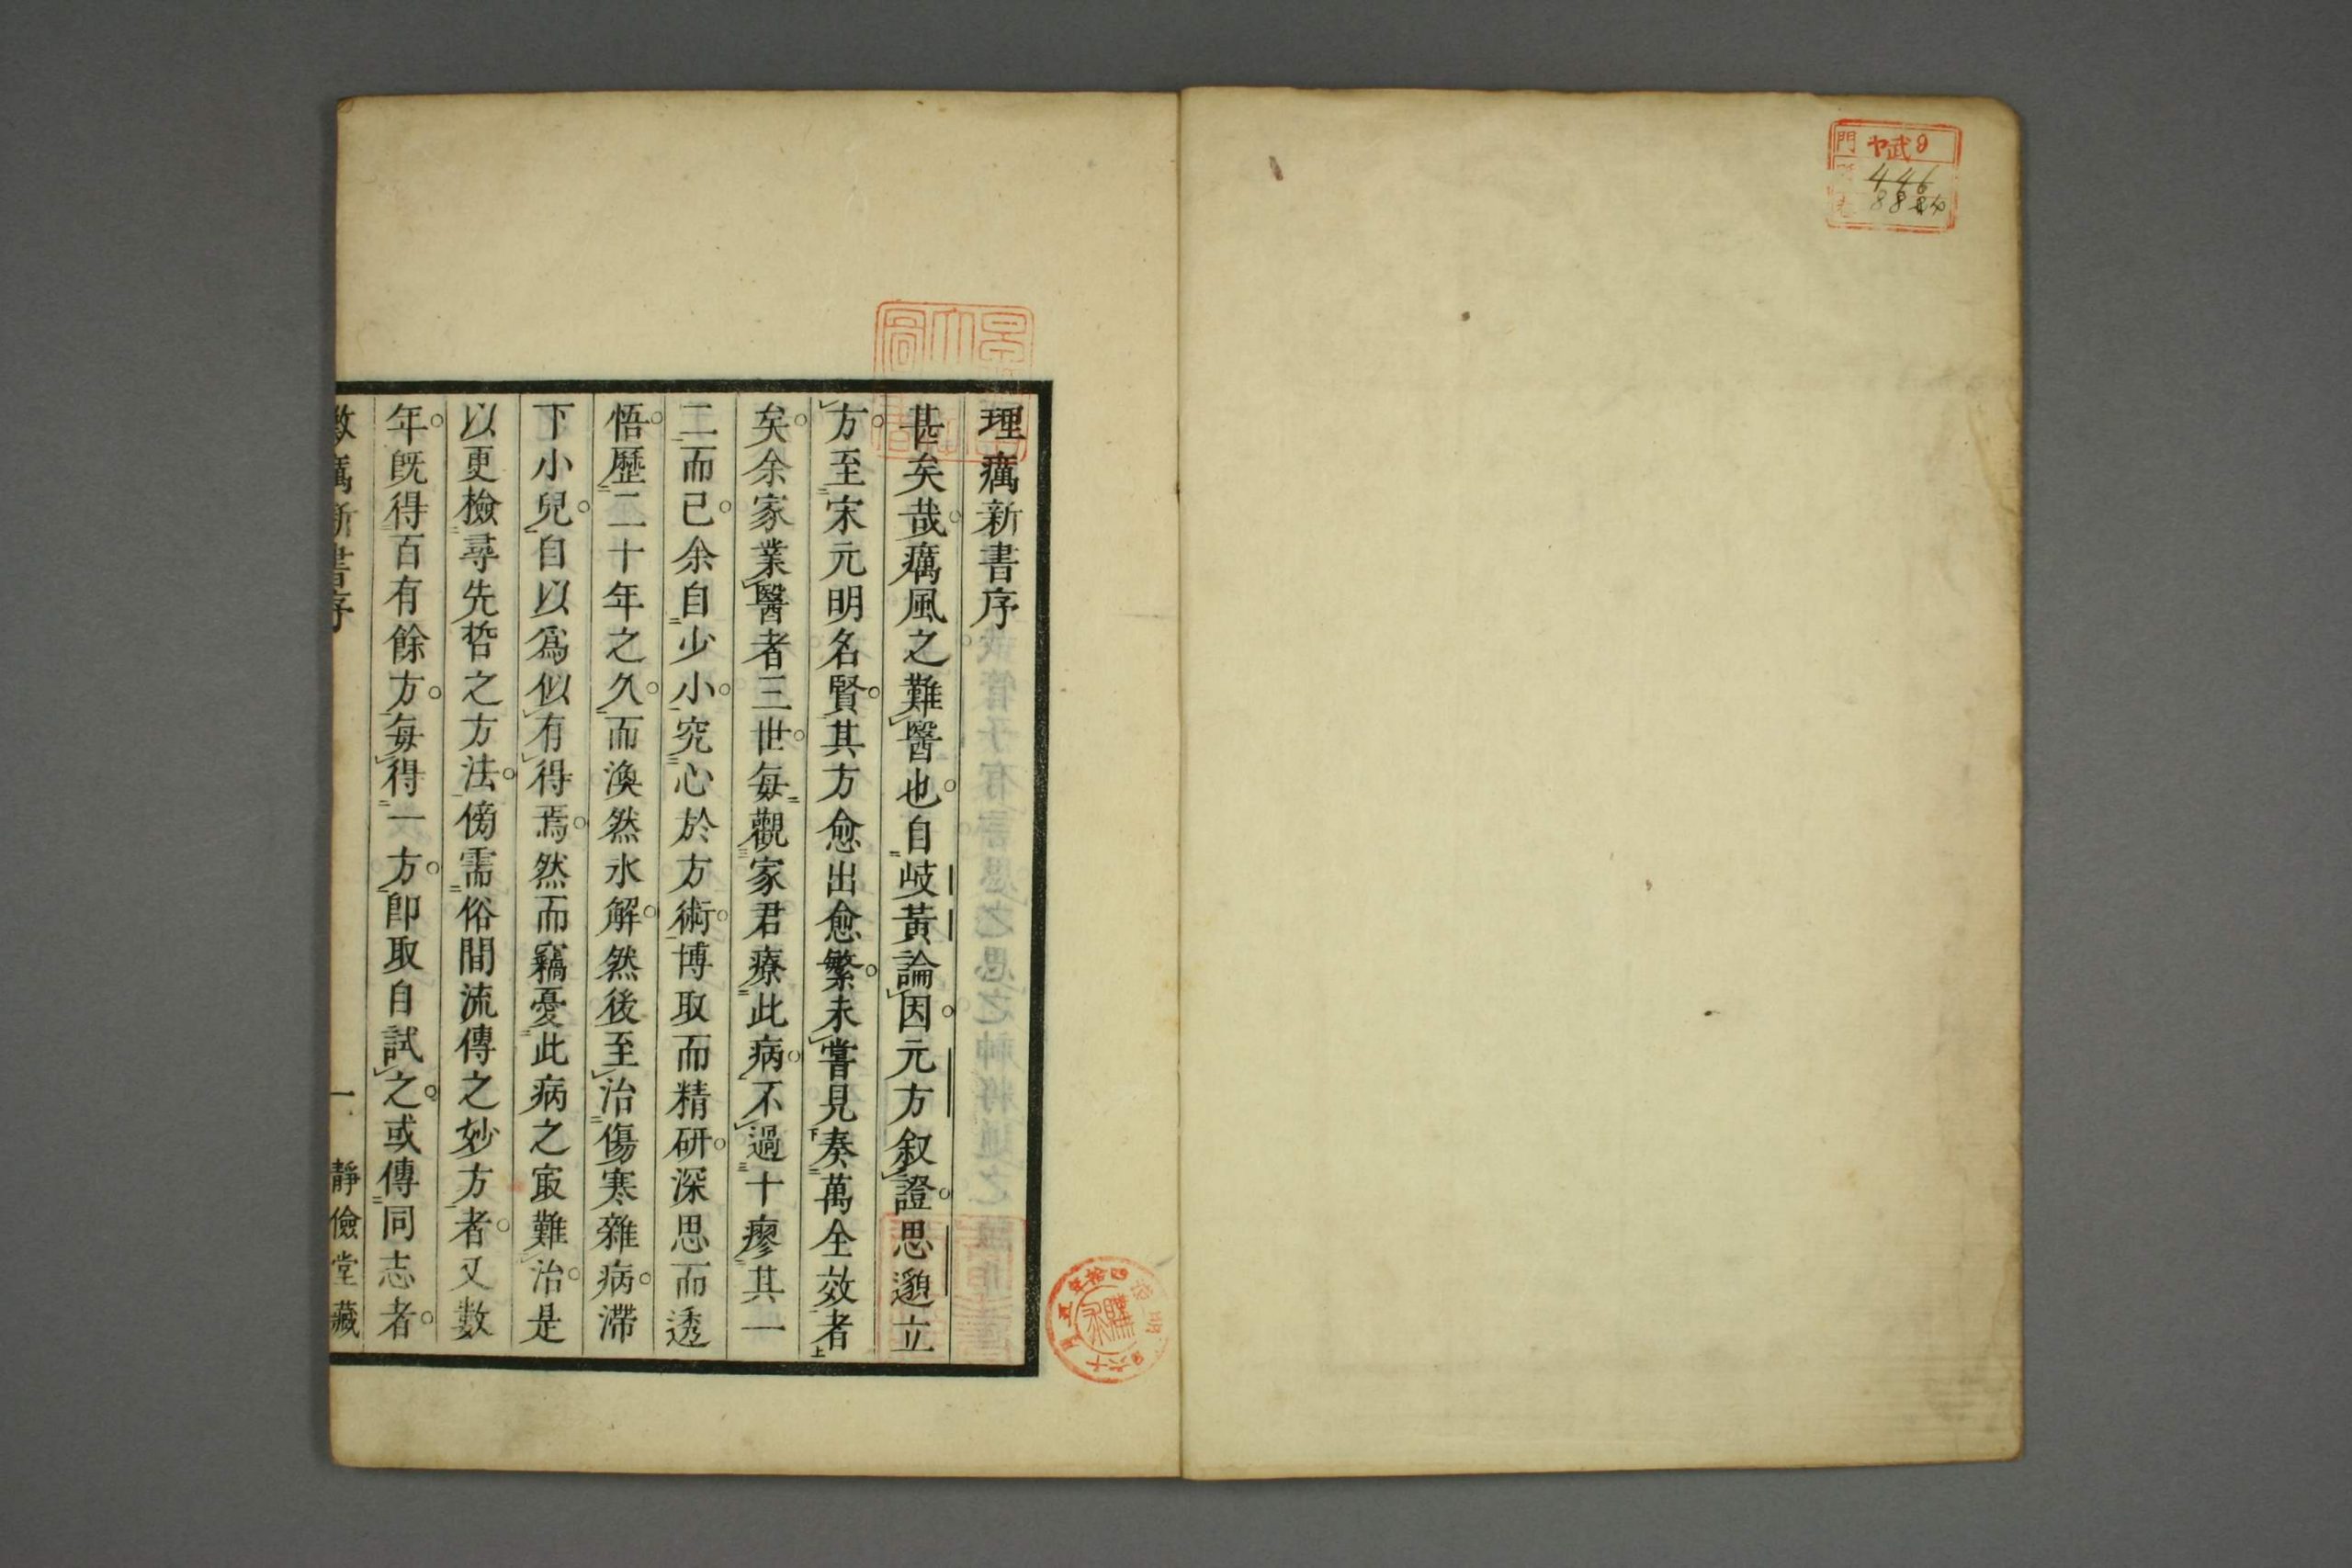 門 ヤ武9
446
88
理癘新書序
甚矣哉癘風之難醫也自岐黃論因元方叙證思邈立
方至宋元明名賢其方愈出愈繁未嘗見奏萬全效者
矣余家業醫者三世每觀家君療此病不過十瘳其一
二而已余自少小究心於方術博取而精研深思而透
悟歷二十年之久而渙然氷解然後至治傷寒雜病滯
下小兒自以爲似有得焉然而竊憂此病之㝡難治是
以更檢尋先哲之方法傍需俗間流傳之妙方者又數
年旣得百有餘方每得一方卽取自試之或傳同志者
癘新書序 一 靜儉堂藏